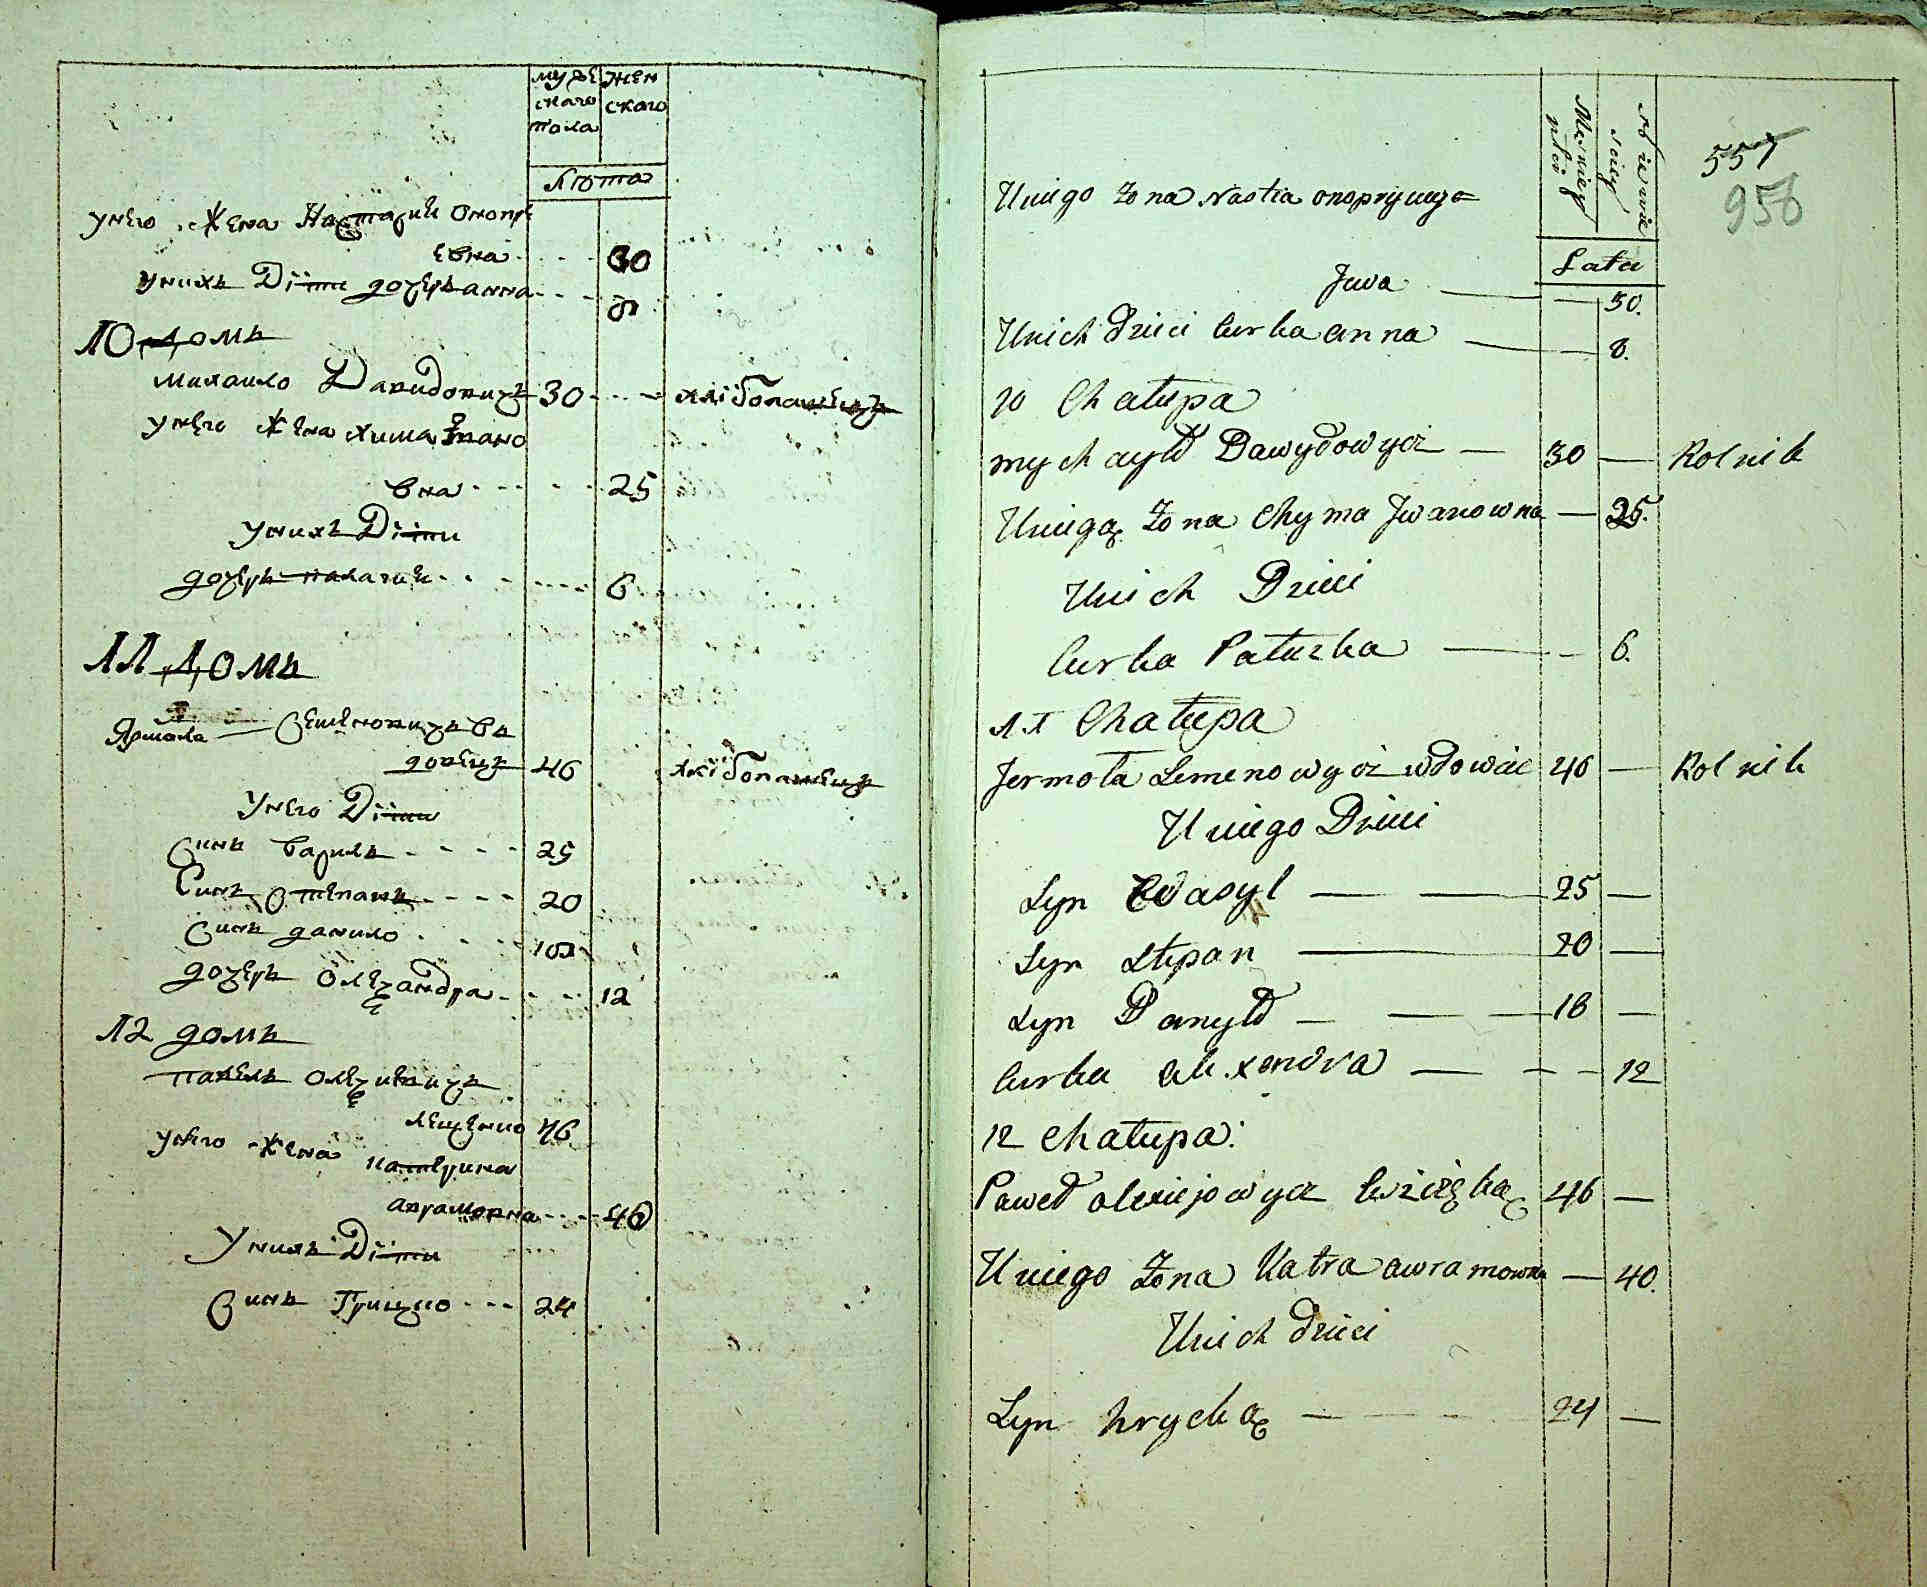 муже
скаго
пола
жен
скаго
Лѣта
унего жена Настасия Онопри
евна 30
унихъ Діти дочеръ анна 8
10 домъ
михаило Давидовичъ 30 хлібопашецъ
унего жена хима Ивано
вна 25
унихъ Діти
дочеръ палагия 6
11 домъ
Ярмола Семеновичъ въ
довецъ 46 хлібопашецъ
Унего Діти
Синъ василь 25
Синъ Степанъ 20
Синъ данило 18
дочеръ Олександра 12
12 домъ
павелъ
46
унего жена катерина
аврамовна 40
Унихъ Діти
Синъ Грицко 24
Męskiej
płci
Lata
557
958
Uniego żona Nastia
Jwa 30.
Unich Dzieci Curka anna 8.
10 Chałupa
mychayło Dawydowycz 30 Rolnik
Uniego żona Chyma Jwanowna 25.
Unich Dzieci
Curka Pałazka 6.
11 Chałupa
Jermoła Semenowycz wdowiec 46 Rolnik
Uniego Dzieci
Syn Wasyl 25
Syn Stepan 20
Syn Danyło 18
Curka alexendra 12
12 Chałupa:
Paweł olexiejowycz 46
Uniego żona Katra awramowna 40.
Unich dzieci
Syn hrycko 24